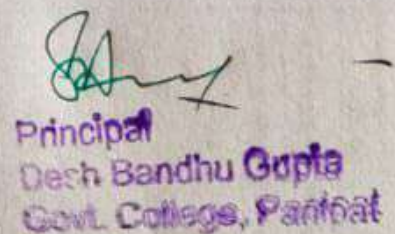 Principal
Desh Bandhu Gupta
Govt. College, Panipat